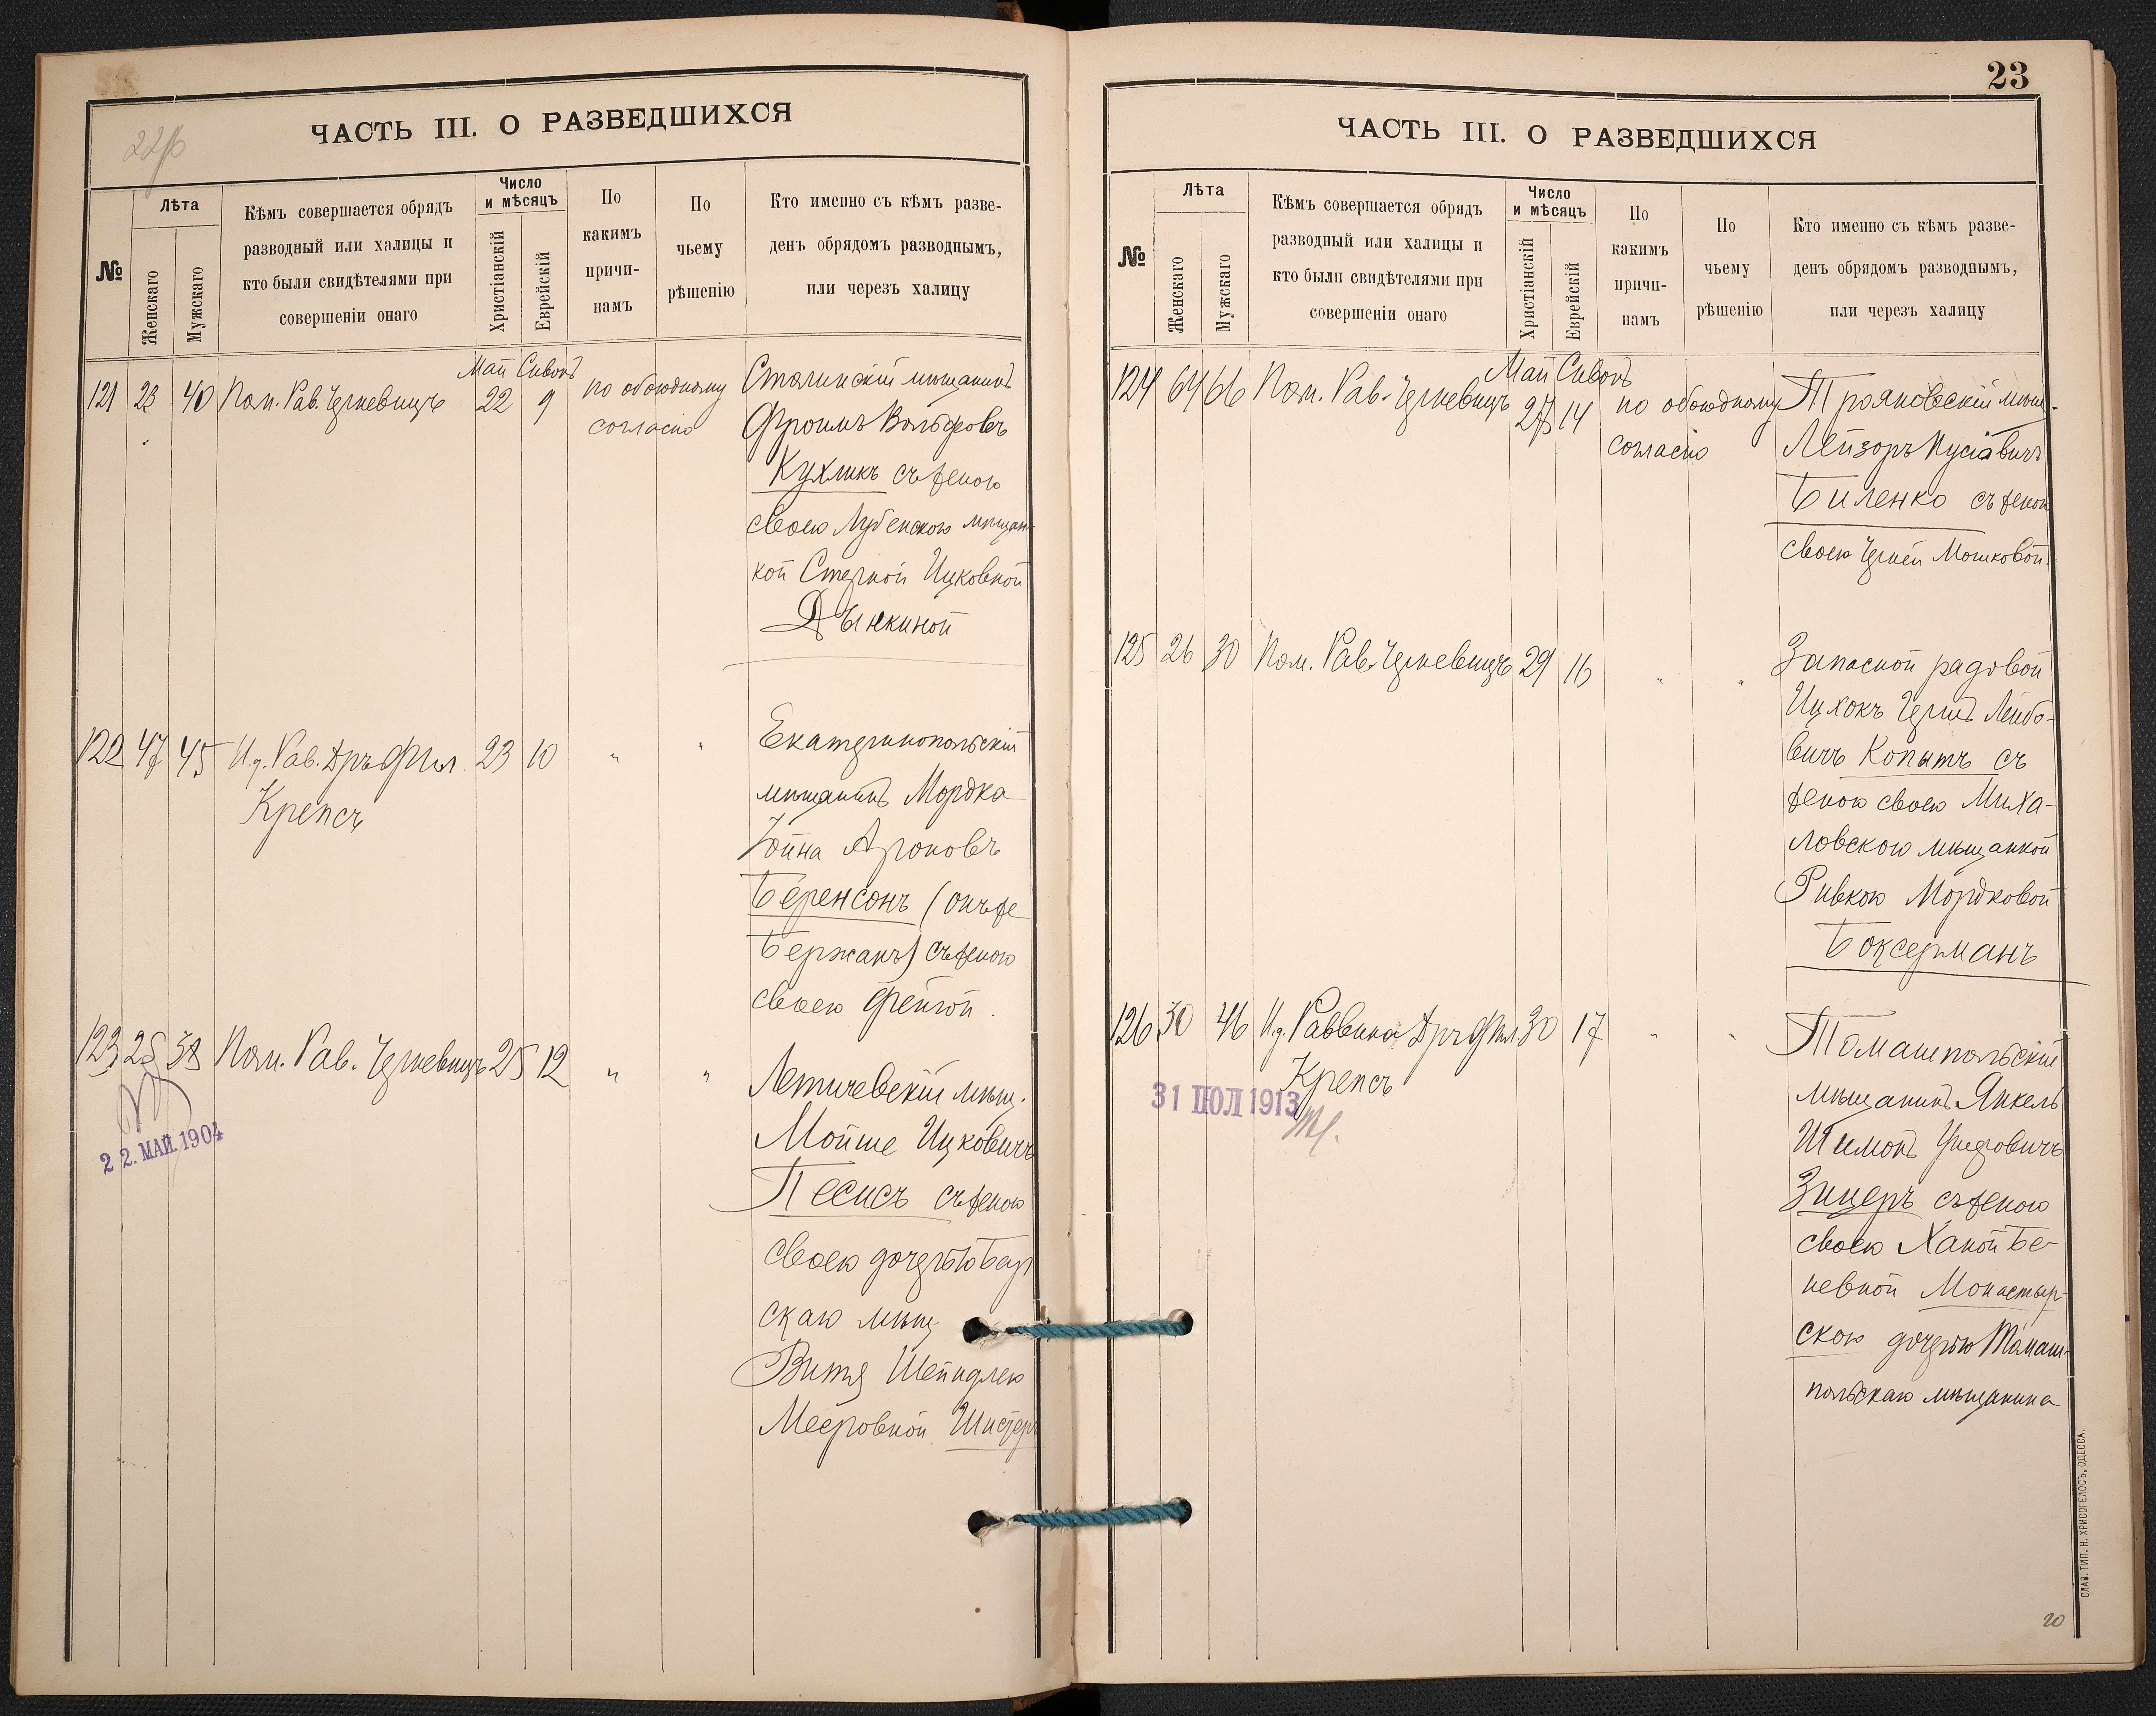 22/б
ЧАСТЬ III. О РАЗВЕДШИХСЯ
№
Лѣта
Женскаго
Мужскаго
Кѣмъ совершается обрядъ
разводный или халицы и
кто были свидѣтелями при
совершеніи онаго
Число
и мѣсяцъ
Христіанскій
Еврейскій
По
какимъ
причи-
намъ
По
чьему
рѣшенію
Кто именно съ кѣмъ разве-
денъ обрядомъ разводнымъ,
или черезъ халицу
Май Сивонъ
121 28 40 Пом. Рав. Черневицъ 22 9 по обоюдному
согласію
мѣщанинъ
Фроимъ Вольфовъ
Кухликъ съ женою
своею Лубенскою мѣщан-
кой Стерной Ицковной
Дынкиной
122 47 45 И.д. Рав. Дръ Фил. 23 10 " "
Крепсъ
Екатеринопольскій
мѣщанинъ Мордка
Іойна Ароновъ
Беренсонъ (онъ же
Бержанъ) съ женою
своею Фейгой.
123 25 38 Пом. Рав. Черневицъ 25 12 " "
Летичевскій мѣщ.
Мойше Ицковичъ
Песисъ съ женою
своею дочерью Бар
скаго мѣщ
Витя Шейндлею
Мееровной Шистеръ
22. МАЙ. 1904
23
ЧАСТЬ III. О РАЗВЕДШИХСЯ
№
Лѣта
Женскаго
Мужскаго
Кѣмъ совершается обрядъ
разводный или халицы и
кто были свидѣтелями при
совершеніи онаго
Число
и мѣсяцъ
Христіанскій
Еврейскій
По
какимъ
причи-
намъ
По
чьему
рѣшенію
Кто именно съ кѣмъ разве-
денъ обрядомъ разводнымъ,
или черезъ халицу
Май Сивонъ
124 64 66 Пом. Рав. Черневицъ 27 14 по обоюдному
согласію
Трояновскій мѣщ.
Лейзоръ Пусіавичъ
Биленко съ женой
своею Черней Мошковой.
125 26 30 Пом. Рав. Черневицъ 29 16 " "
Запасной рядовой
Ицхокъ Гершъ Лейбо-
вичъ Копытъ съ
женою своею Миха-
ловскою мѣщанкой
Ривкою Мордковой
Боксерманъ
126 30 46 И.д. Раввина Дръ Фил. 30 17 " "
Крепсъ
31 ІЮЛ 1913
Томашпольскій
мѣщанинъ Янкель
Шимонъ
Зицеръ съ женою
своею Ханой Бе-
невной Монастыр-
скою дочерью Томаш-
польскаго мѣщанина
СЛАВ. ТИП. Н. ХРИСОГЕЛОСЪ, ОДЕССА.
20